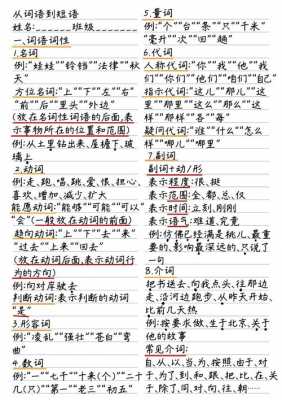 从词语到短语
姓名:______班级________
一、词语词性
1.名词
例:"娃娃""铃铛""法律""秋
天"
方位名词:"上""下""左""右"
"前""后""里头""外边"
(放在名词性词语的后面,表
示事物所在的位置和范围)
例:从土里钻出来、屋檐下、玻
璃上
2.动词
例:走、跑、唱、跳、爱、恨、担心、
喜欢、增加、减少、扩大
能愿动词:"能够""可能""可以"
"会"(一般放在动词的前面)
趋向动词:"上""下""去""来"
"过去""上来""回去"
(放在动词后面,表示动词行
为的方向)
例:向对岸驶去
判断动词:表示判断的动词
"是"
3.形容词
例:"凌乱""强壮""苍白""弯
曲"
4.数词
例:"一""七千""十来(个)""二十
几(只)""第一""老三""初五"
5.量词
例:"个""台""条""只""千米"
"毫升""次""回""趟"
6.代词
人称代词:"你""我""他""我
们""你们""他们""咱们""自己"
指示代词:"这儿""那儿""这
里""那里""这么""那么""这
样""那样""各""每"
疑问代词:"谁""什么""怎么
样""哪儿""哪里"
7.副词
副词+动/形
表示程度:很、挺
表示范围:全、都、总、仅
表示时间:立刻、刚刚
表示语气:难道、究竟
例:仿佛已经满是桃儿、最重
要的、影响最深远的、只说了
一句
8.介词
把书送去、向我点头、往那边
走、沿河边跑步、从昨天开始、
比前几天热
例:按要求做、生于北京、关于
他的故事
常见介词:
自、从、以、当、为、按照、由于、对
于、为了、到、和、跟、把、比、在、关
于、除了、同、对、向、往、朝……